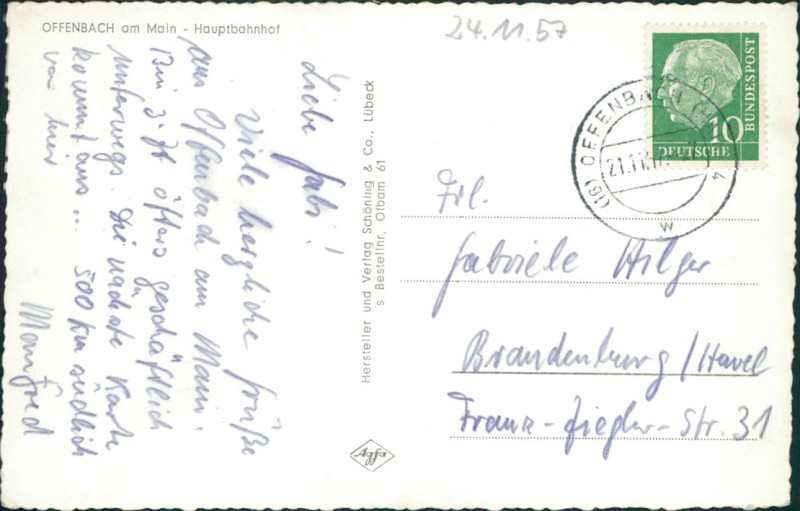 OFFENBACH am Main - Hauptbahnhof
24.11.57
Liebe Gabi!
Viele herzliche Grüße
aus Offenbach am Main.
Bin z. Zt öfters geschäftlich
unterwegs. Die nächste Karte
kommt aus ... 500 km südlich
von hier
Manfred
Hersteller und Verlag Schöning & Co., Lübeck
s Bestellnr. Ofbam 61
Agfa
10
DEUTSCHE
BUNDESPOST
(16) OFFENBACH
21.11.
w
Frl.
Gabriele Hilger
Brandenburg/Havel
Franz-Ziegler-Str. 31